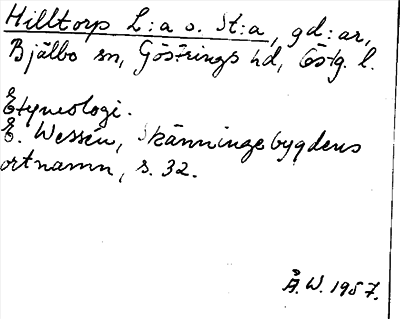 Hilltorp L:a o. St:a, gd:ar,
Bjälbo sn, Göstrings hd, Östg. l.
Etymologi.
E. Wessén, Skänningebygdens
ortnamn, s. 32.
Å.W. 1957.